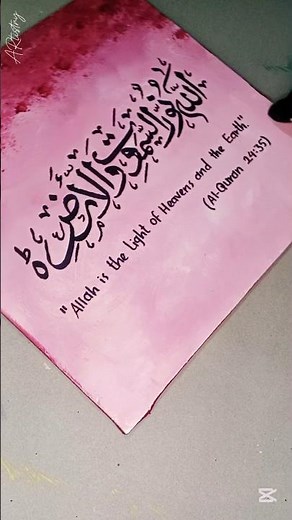 ARtistry
اللَّهُ نُورُ السَّمٰوٰتِ وَالْأَرْضِ ط
"Allah is the light of Heavens and the Earth"
(Al-Quran 24:35)